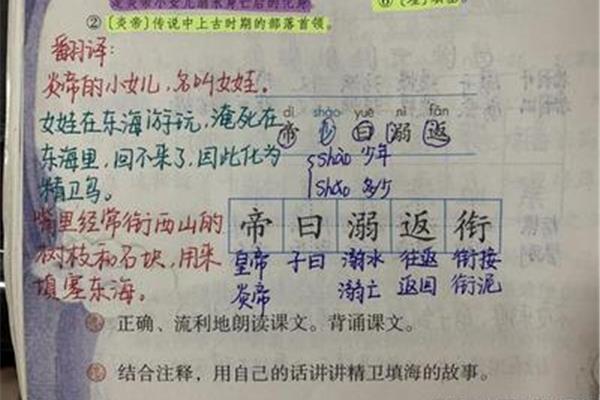 ②〔炎帝〕传说中上古时期的部落首领。
翻译:
炎帝的小女儿,名叫女娃。
女娃在东海游玩,淹死在
东海里,回不来了,因此化为
精卫鸟。
嘴里经常衔西山的
树枝和石块,用来
填塞东海。
dì shào yuē nì fǎn
帝 少 曰 溺 返
shào 少年
shǎo 多少
帝 曰 溺 返 衔
皇帝 子曰 溺水 往返 衔接
炎帝 溺亡 返回 衔泥
正确、流利地朗读课文。背诵课文。
结合注释,用自己的话讲讲精卫填海的故事。